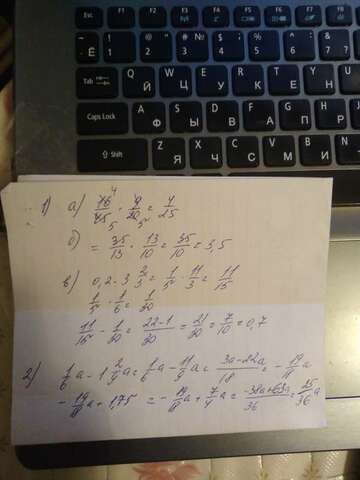 Esc F1 F2 F3 F4 F5 F6 F7
~ Ё ! 1 @ 2 # № 3 $ 4 % 5 ^ 6 & 7
Tab Й Ц У К Е Н
Caps Lock Ф Ы В А П Р
Shift Я Ч С М И
1) а) 16/45 · 9/20 = 4/25
б) = 35/13 · 13/10 = 35/10 = 3,5
в) 0,2 · 3 2/3 = 1/5 · 11/3 = 11/15
1/5 · 1/6 = 1/30
11/15 - 1/30 = 22-1/30 = 21/30 = 7/10 = 0,7
2) 1/6 a - 1 2/9 a = 1/6 a - 11/9 a = 3a-22a/18 = - 19/18 a
- 19/18 a + 1,75 = - 19/18 a + 7/4 a = -38a+63a/36 = 25/36 a